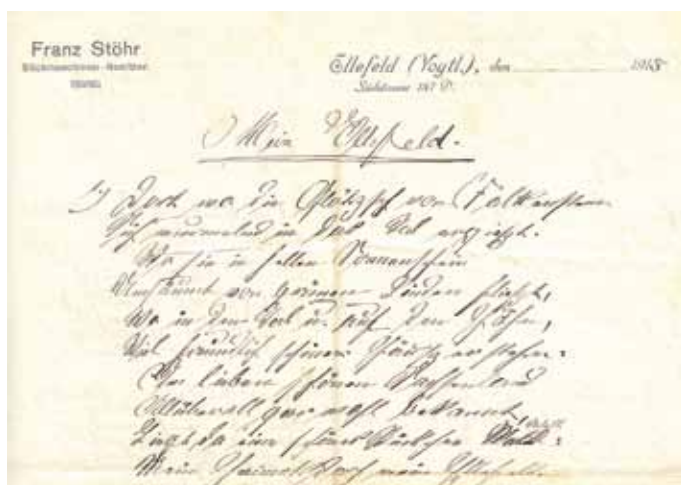 Franz Stöhr
Stickmaschinen-Besitzer
Ellefeld (Vogtl.), den 1915
Mein Ellefeld.
1.) Dort wo die Göltzsch von Falkenstein
Sich murmelnd in das Tal ergießt.
Wo sie in hellen Sonnenschein
Umsäumt von grünen Linden fließt,
Wo in dem Tal u. auf den Höhn,
Viel freundlich schöne Häuser stehn:
Im lieben schönen Sachsenland
Allüberall gar wohl bekannt,
Liegt da ein schönes Stückchen Welt:
Mein Heimatdorf mein Ellefeld.